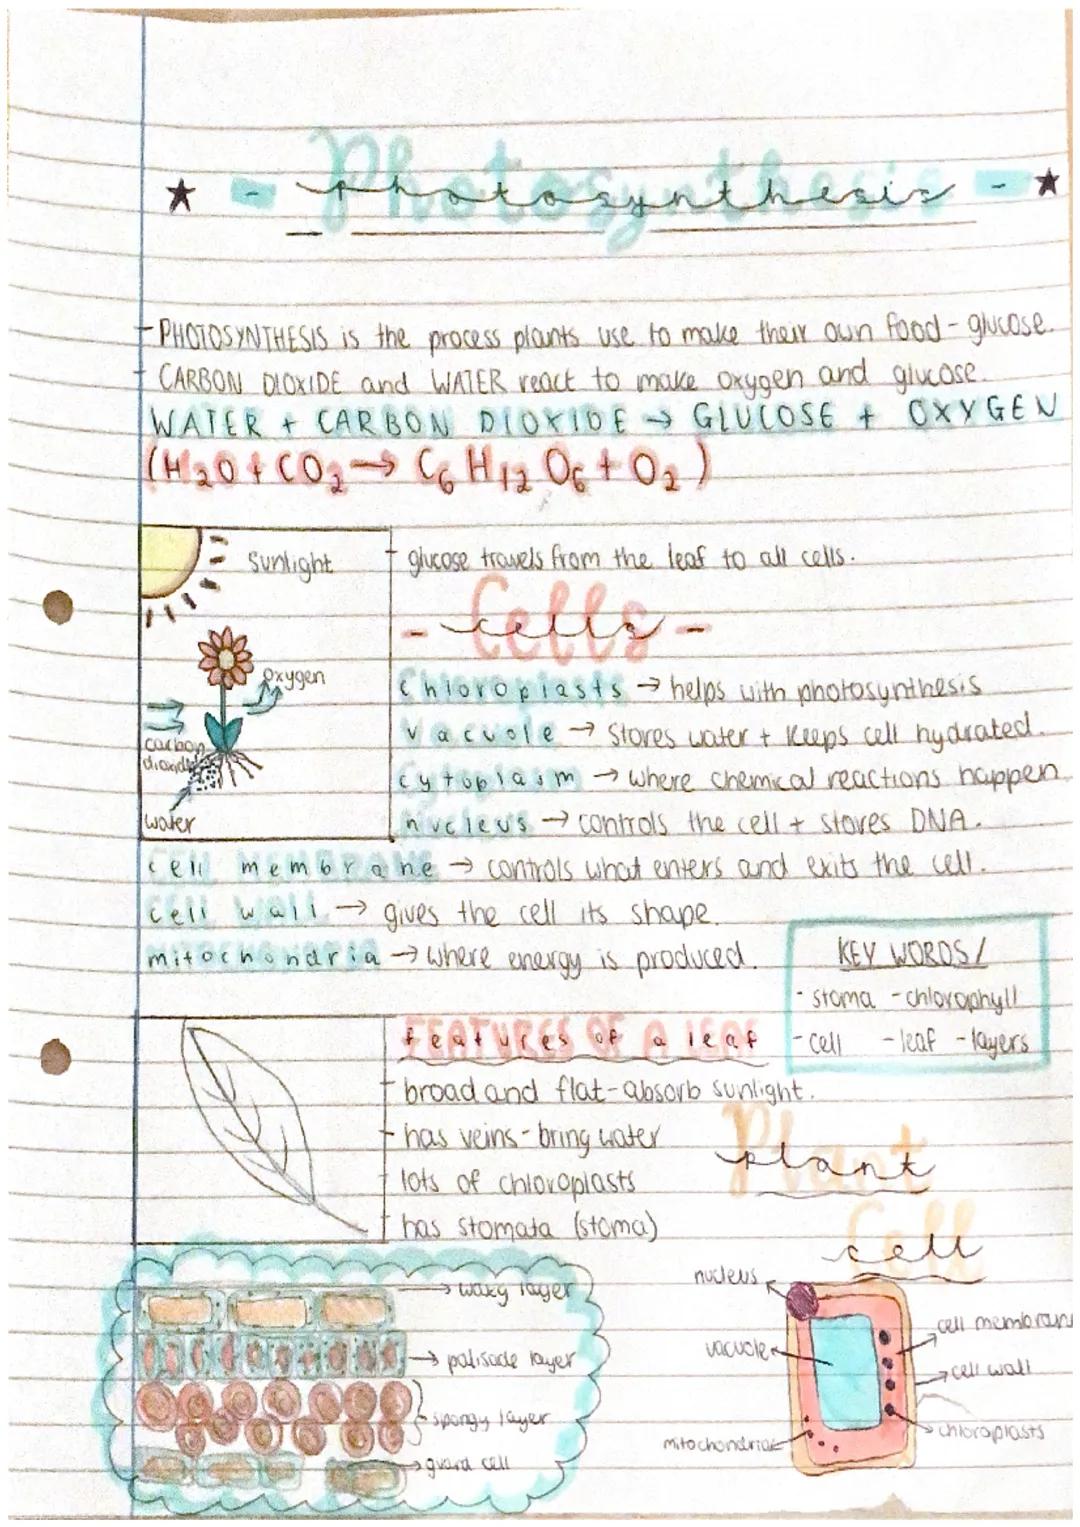 - Photosynthesis -
- PHOTOSYNTHESIS is the process plants use to make their own food - glucose.
- CARBON DIOXIDE and WATER react to make oxygen and glucose.
WATER + CARBON DIOXIDE → GLUCOSE + OXYGEN
(H₂O + CO₂ → C₆H₁₂O₆ + O₂)
Sunlight
oxygen
carbon dioxide
water
- glucose travels from the leaf to all cells.
- Cells -
Chloroplasts → helps with photosynthesis
Vacuole → Stores water + keeps cell hydrated.
cytoplasm → where chemical reactions happen
nucleus → controls the cell + stores DNA.
cell membrane → controls what enters and exits the cell.
cell wall → gives the cell its shape.
mitochondria → where energy is produced.
KEY WORDS/
- stoma - chlorophyll
- cell - leaf - layers
FEATURES OF A LEAF
- broad and flat - absorb sunlight.
- has veins - bring water
- lots of chloroplasts
- has stomata (stoma)
waxy layer
palisade layer
spongy layer
guard cell
Plant
Cell
nucleus
vacuole
mitochondria
cell membrane
cell wall
chloroplasts